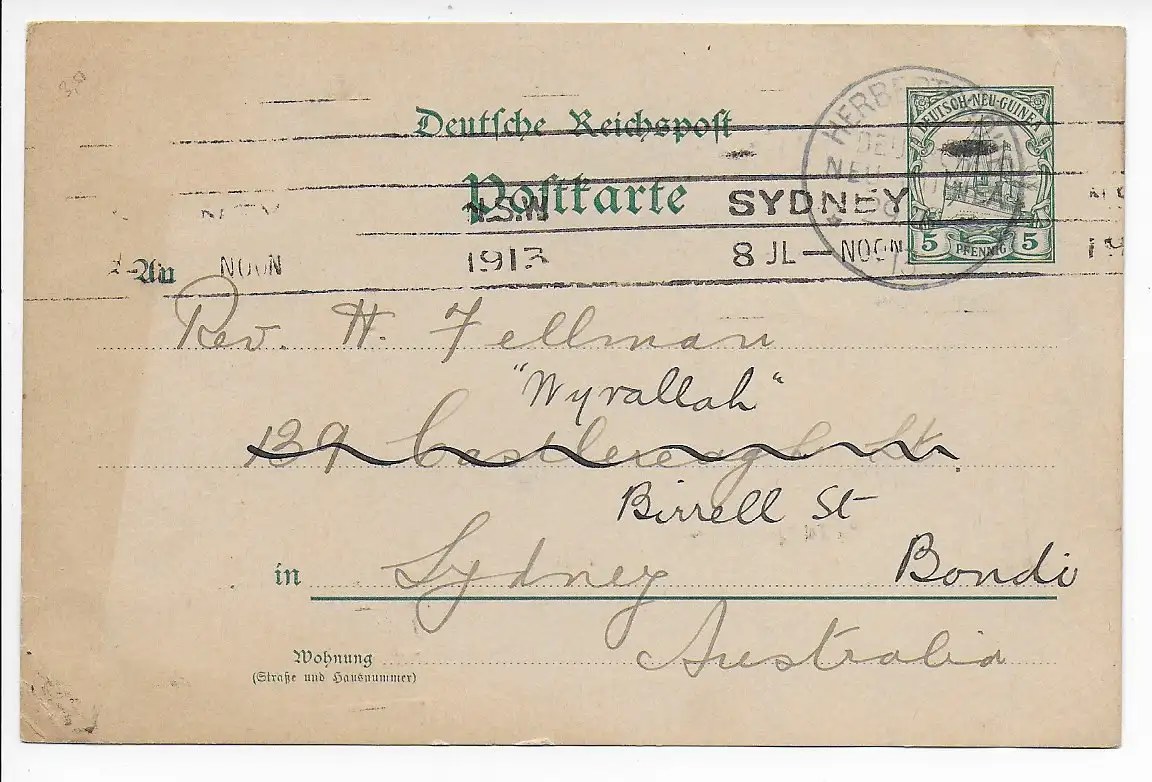 3,50
Deutsche Reichspost
Postkarte
HERBERTSHÖHE
DEUTSCH
NEU-GUINEA
DEUTSCH-NEU-GUINEA
5 PFENNIG 5
N.S.W SYDNEY
NOON 1913 8 JL — NOON
An
Rev. H. Fellman
"Wyvallah"
139 Castlereagh St.
Birrell St
in Sydney Bondi
Australia
Wohnung
(Straße und Hausnummer)